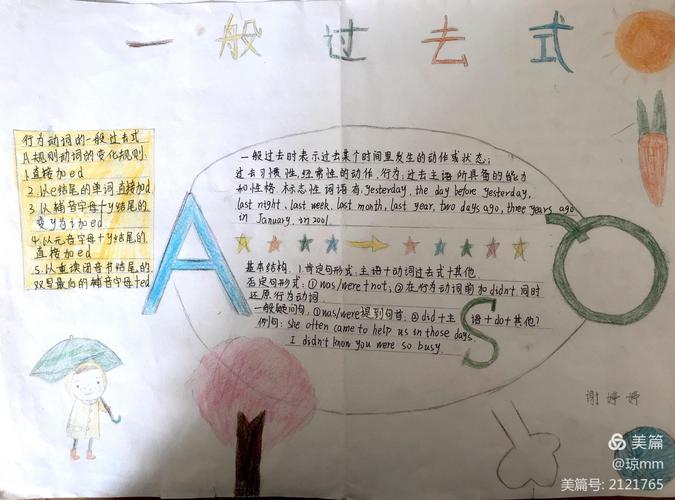 一般过去式
行为动词的一般过去式
A规则动词的变化规则.
1.直接加ed
2.以e结尾的单词,直接加d
3.以辅音字母+y结尾的
变y为i加ed
4.以元音字母+y结尾的
直接加ed
5.以重读闭音节结尾的,
双写最后的辅音字母+ed
一般过去时表示过去某个时间里发生的动作或状态;
过去习惯性,经常性的动作,行为;过去主语所具备的能力
和性格,标志性词语有,yesterday, the day before yesterday,
last night, last week, last month, last year, two days ago, three years ago
in January, in 2001.
A
基本结构, 1.肯定句形式:主语+动词过去式+其他.
否定句形式:①was/were+not,②在行为动词前加didn't,同时
还原行为动词
一般疑问句,①was/were提到句首,②did+主语+do+其他?
例句: she often came to help us in those days.
I didn't know you were so busy.
S
谢婷婷
美篇
@琼mm
美篇号: 2121765